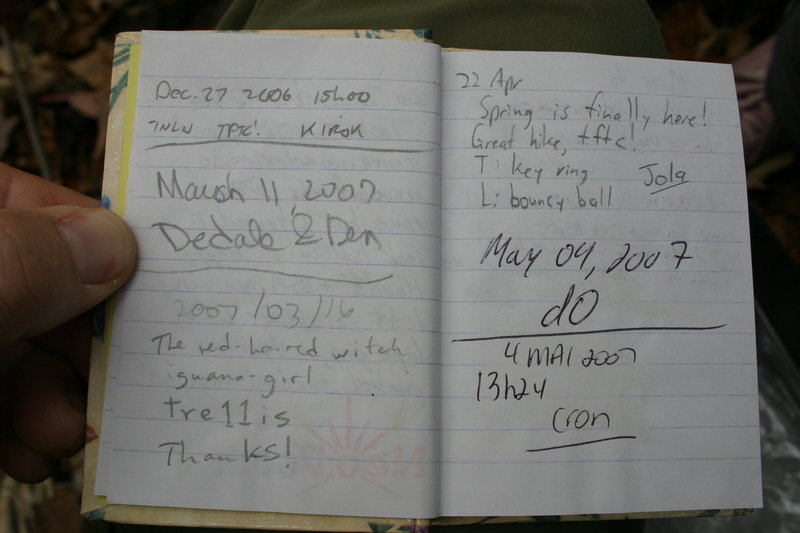 Dec. 27 2006 15h00
TNLN TFTC! KIROK
March 11, 2007
Dedale & Den
2007/03/16
The red-haired witch
iguana-girl
tre11is
Thanks!
22 Apr
Spring is finally here!
Great hike, tftc!
T: key ring
Jola
L: bouncy ball
May 04, 2007
dO
4 MAI 2007
13h24
Cron